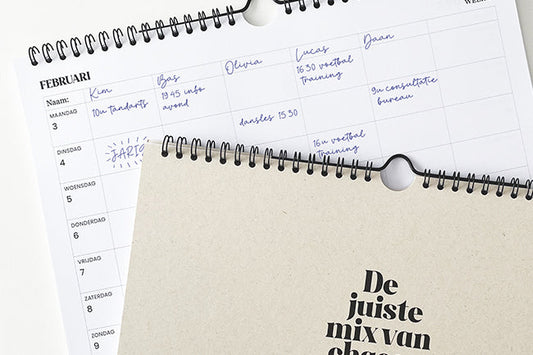 WEEK
FEBRUARI
Naam: Kim Bas Olivia Lucas Daan
MAANDAG
3
10u tandarts
19.45 info
avond
16.30 voetbal
training
DINSDAG
4
JARIG
dansles 15.30
16u voetbal
training
9u consultatie
bureau
WOENSDAG
5
DONDERDAG
6
VRIJDAG
7
ZATERDAG
8
ZONDAG
9
De
juiste
mix van